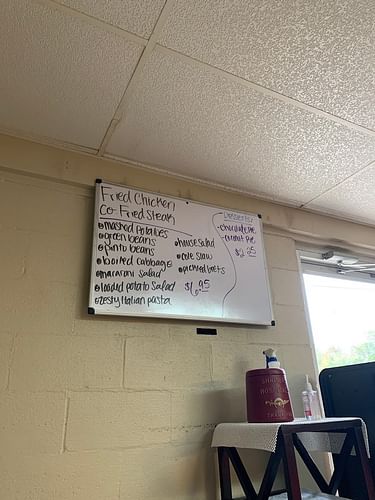 Fried Chicken
Co-Fried Steak
mashed potatoes
green beans
pinto beans
boiled cabbage
macaroni salad
loaded potato salad
zesty Italian pasta
house salad
cole slaw
pickled beets
$6.95
Desserts:
-chocolate pie
-coconut pie